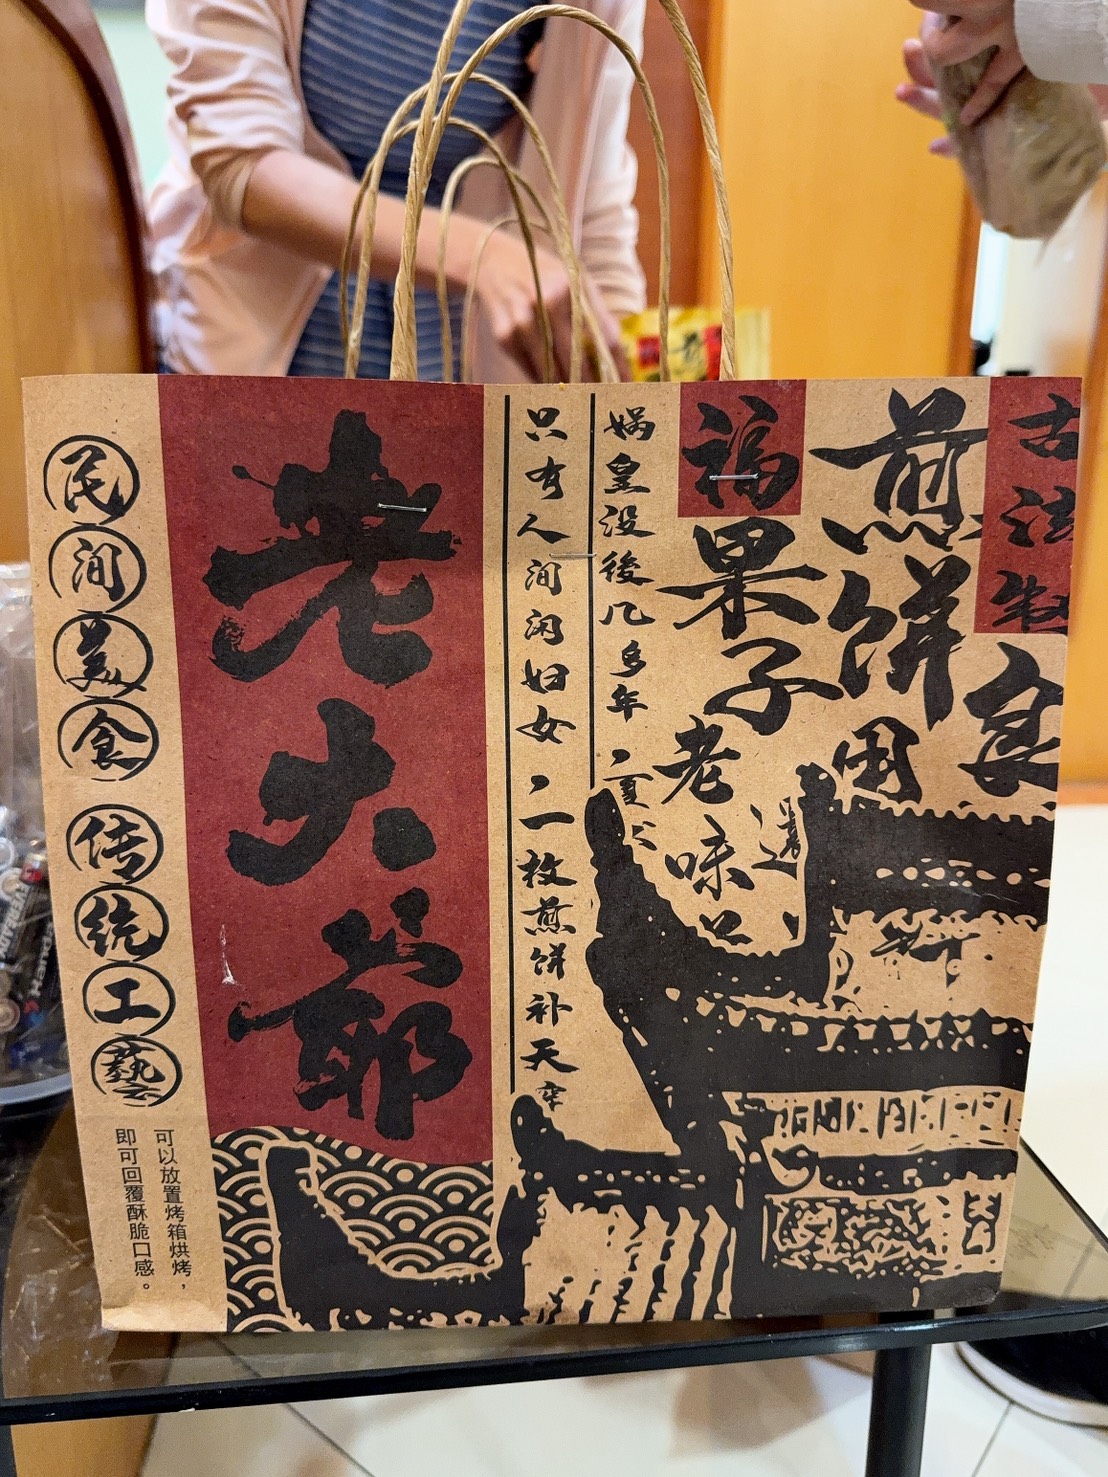 古法制
良
煎饼
用
福
果子
老味
遺
媧皇没後几多年
夏
只有人间闲妇女
一枚煎饼补天穿
老大爷
民间美食
传统工藝
可以放置烤箱烘烤，
即可回覆酥脆口感。